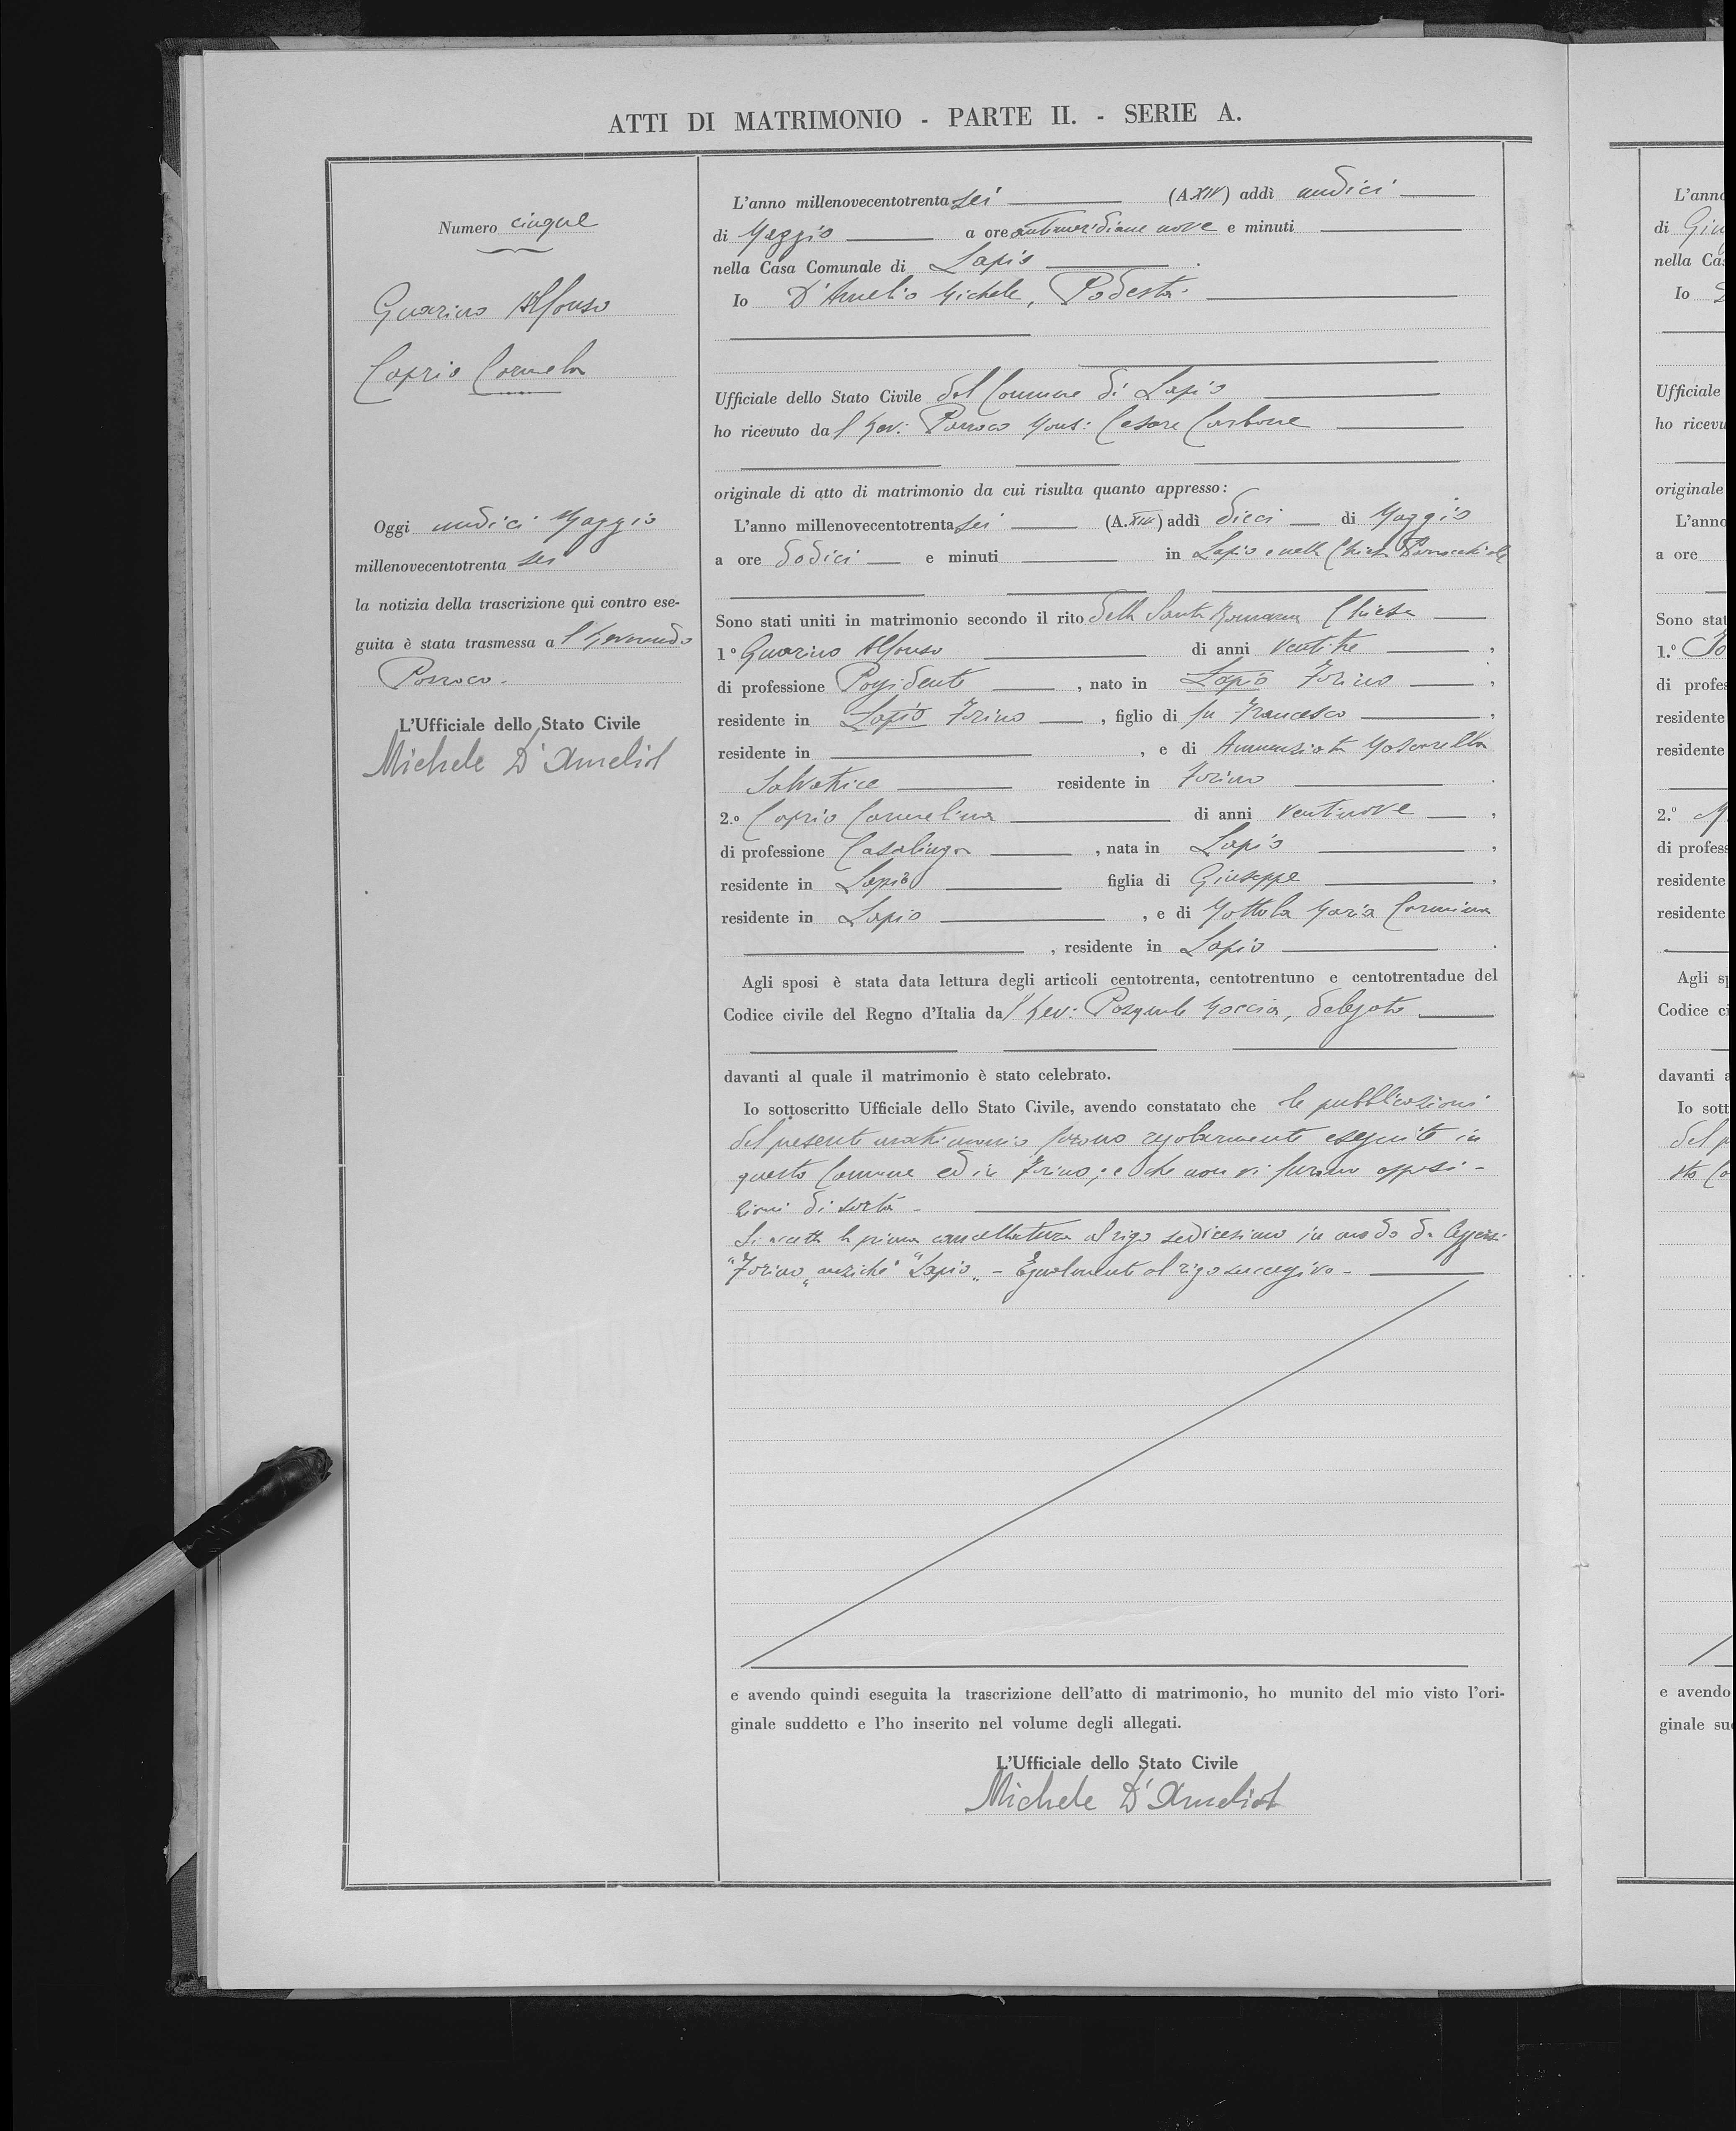 ATTI DI MATRIMONIO - PARTE II. - SERIE A.
Numero cinque
Guarino Alfonso
Caprio Carmela
Oggi undici Maggio
millenovecentotrenta sei
la notizia della trascrizione qui contro ese-
guita è stata trasmessa a l Reverendo
Parroco.
L'Ufficiale dello Stato Civile
Michele D'Amelio
L'anno millenovecentotrenta sei (A. XIV) addì undici
di Maggio a ore antimeridiane nove e minuti
nella Casa Comunale di Lapio.
Io D'Amelio Michele, Podestà.
Ufficiale dello Stato Civile del Comune di Lapio
ho ricevuto dal Rev: Parroco Mons: Cesare Carbone
originale di atto di matrimonio da cui risulta quanto appresso:
L'anno millenovecentotrenta sei (A. XIV) addì dieci di Maggio
a ore dodici e minuti in Lapio e nella Chiesa Parrocchiale
Sono stati uniti in matrimonio secondo il rito della Santa Romana Chiesa
1º Guarino Alfonso di anni ventitre,
di professione Possidente, nato in Lapio Forino,
residente in Lapio Forino, figlio di fu Francesco,
residente in , e di Annunziata
Salvatrice residente in Forino.
2.º Caprio Carmelina di anni ventinove,
di professione Casalinga, nata in Lapio,
residente in Lapio figlia di Giuseppe,
residente in Lapio, e di Mottola Maria Carmina
, residente in Lapio.
Agli sposi è stata data lettura degli articoli centotrenta, centotrentuno e centotrentadue del
Codice civile del Regno d'Italia dal Rev: Pasquale Maccia, delegato
davanti al quale il matrimonio è stato celebrato.
Io sottoscritto Ufficiale dello Stato Civile, avendo constatato che le pubblicazioni
del presente matrimonio furono regolarmente eseguite in
questo Comune ed in Forino; e che non vi furono opposi-
zioni di sorta -
Si accetta la prima cancellatura al rigo sedicesimo in modo da leggersi
"Forino" anziché "Lapio" - Egualmente al rigo successivo -
e avendo quindi eseguita la trascrizione dell'atto di matrimonio, ho munito del mio visto l'ori-
ginale suddetto e l'ho inserito nel volume degli allegati.
L'Ufficiale dello Stato Civile
Michele D'Amelio
L'anno
di Giu
nella Cas
Io
Ufficiale
ho ricevu
originale
L'anno
a ore
Sono stat
1.º
di profes
residente
residente
2.º
di profess
residente
residente
Agli sp
Codice ci
davanti a
Io sott
del p
sto Co
e avendo
ginale su